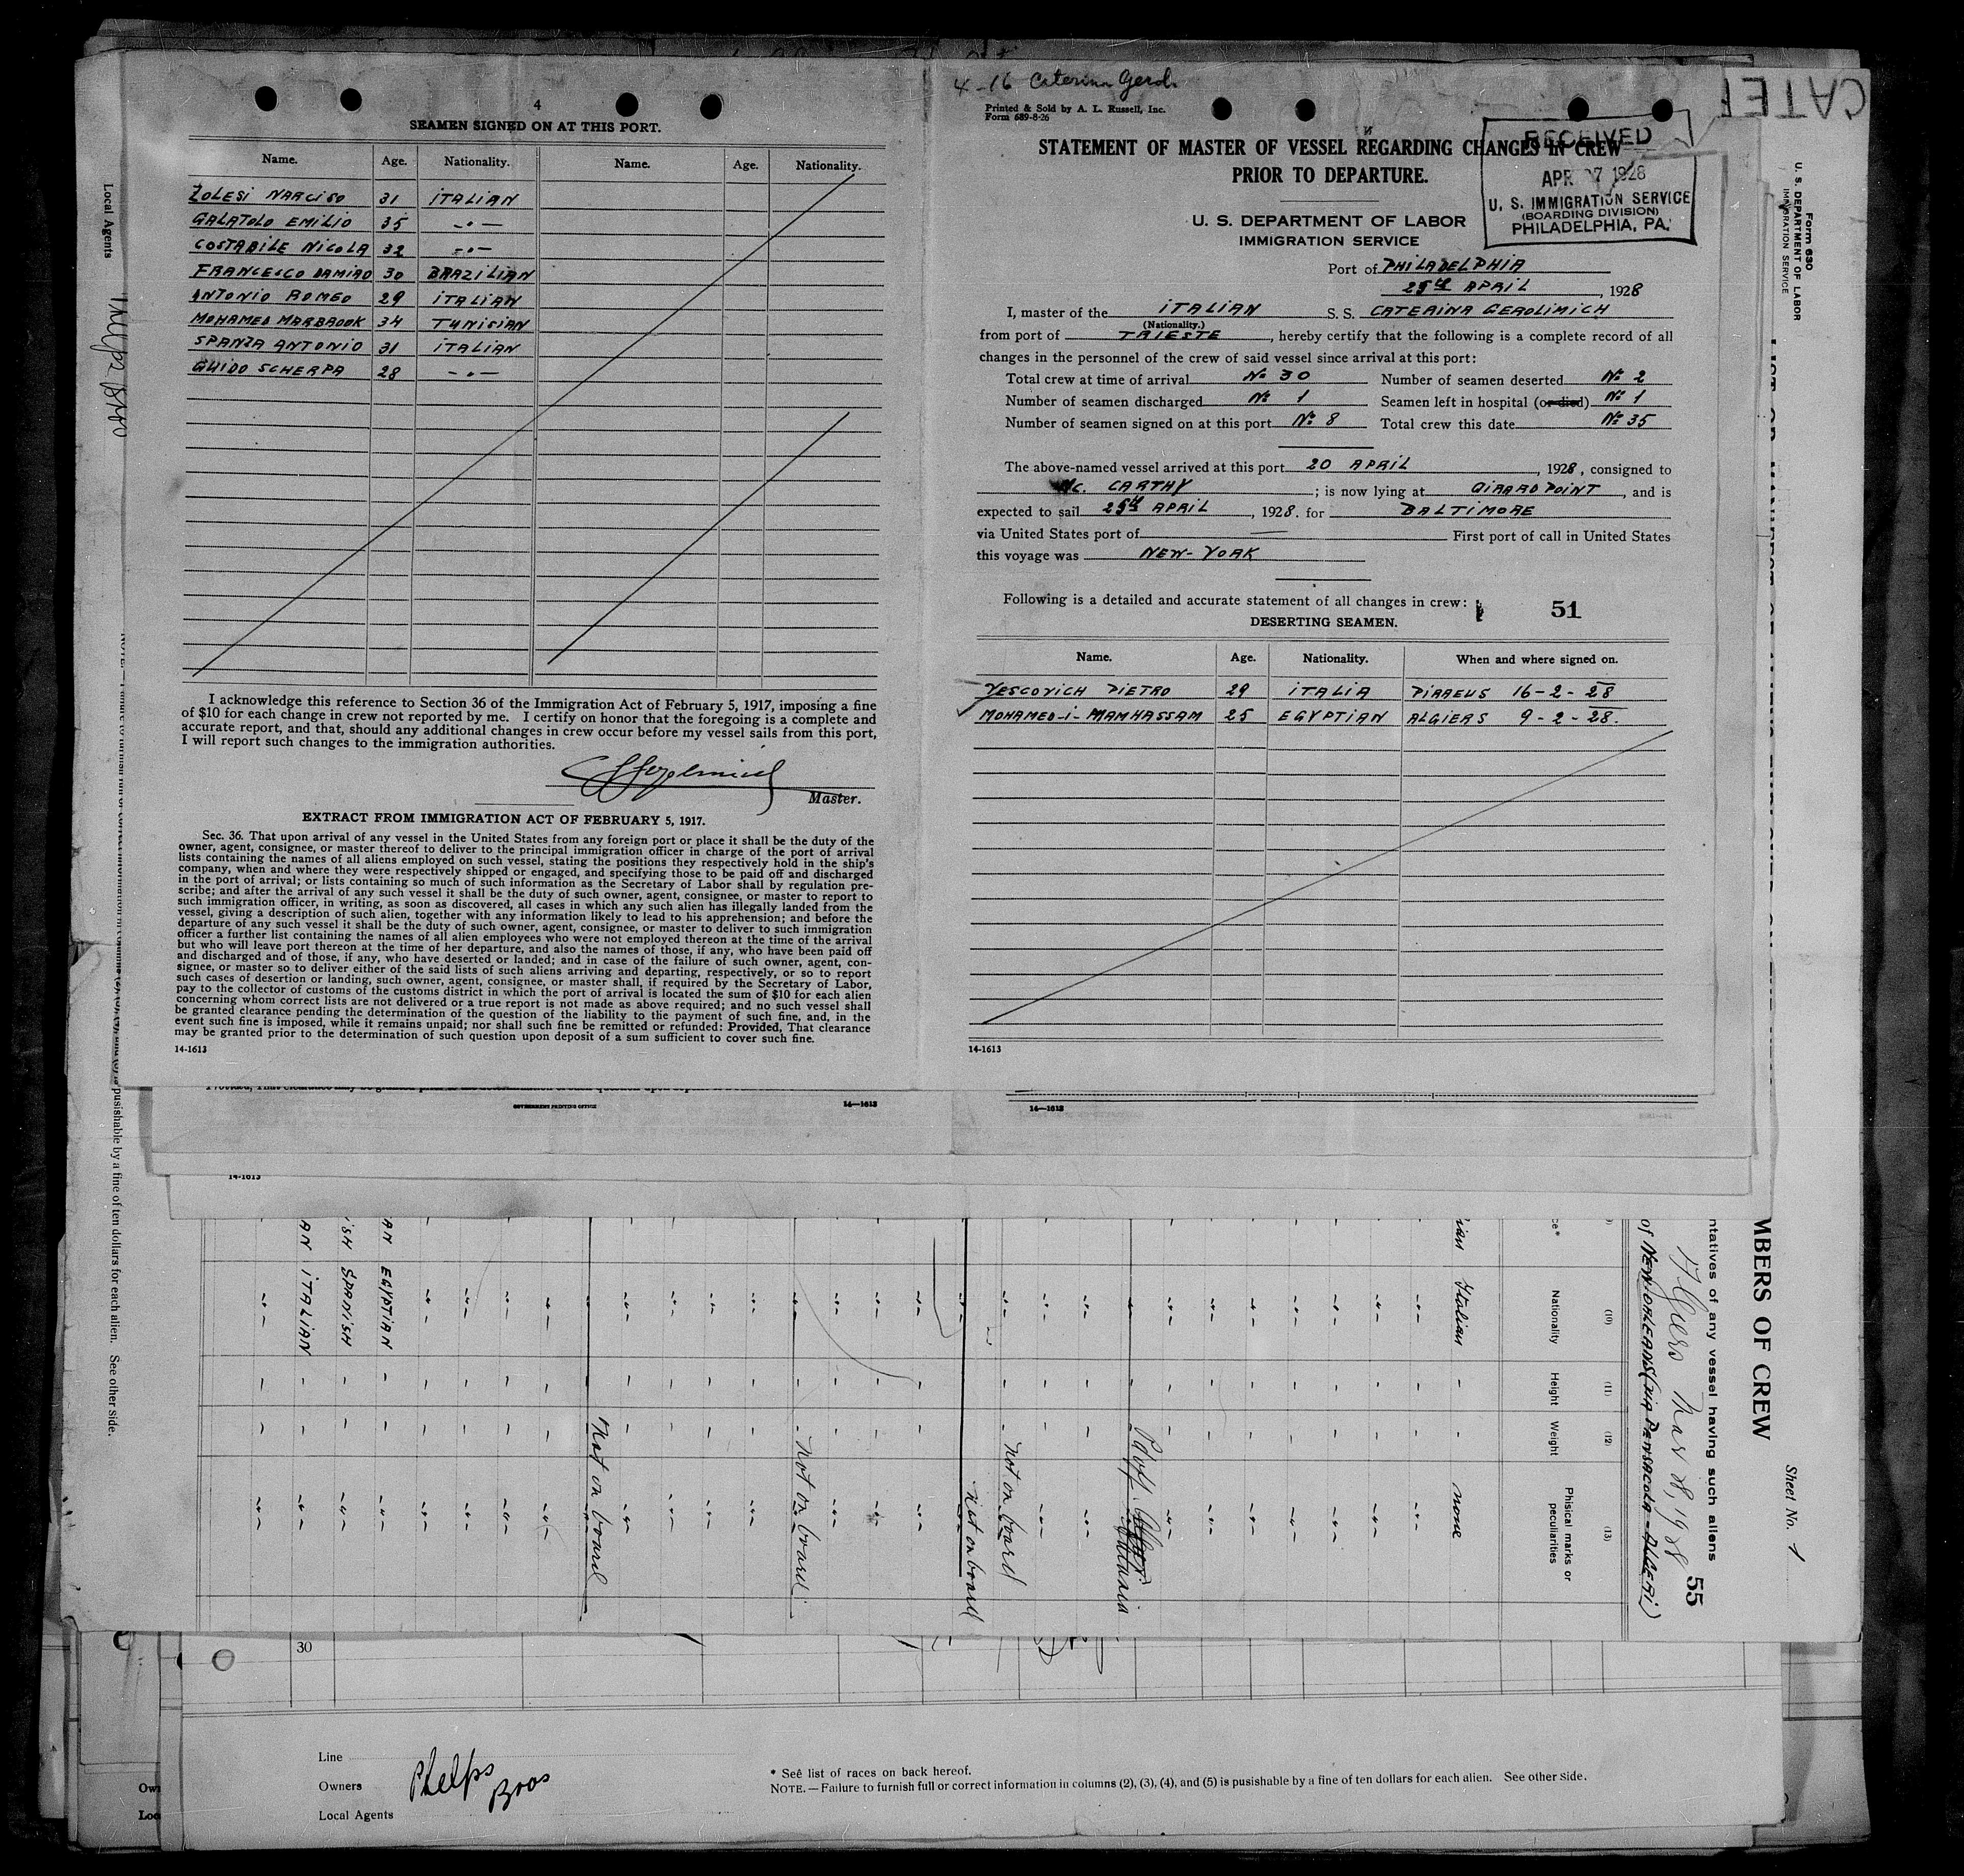 4
SEAMEN SIGNED ON AT THIS PORT.
Name. Age. Nationality. Name. Age. Nationality.
ZOLESI NARCISO 31 ITALIAN
GALATOLO EMILIO 35 -"-
COSTABILE NICOLA 32 -"-
FRANCESCO DAMIAO 30 BRAZILIAN
ANTONIO ROMEO 29 ITALIAN
MOHAMED MARBROOK 34 TUNISIAN
SPANZA ANTONIO 31 ITALIAN
GUIDO SCHERPA 28 -"-
I acknowledge this reference to Section 36 of the Immigration Act of February 5, 1917, imposing a fine
of $10 for each change in crew not reported by me. I certify on honor that the foregoing is a complete and
accurate report, and that, should any additional changes in crew occur before my vessel sails from this port,
I will report such changes to the immigration authorities.
Master.
EXTRACT FROM IMMIGRATION ACT OF FEBRUARY 5, 1917.
Sec. 36. That upon arrival of any vessel in the United States from any foreign port or place it shall be the duty of the
owner, agent, consignee, or master thereof to deliver to the principal immigration officer in charge of the port of arrival
lists containing the names of all aliens employed on such vessel, stating the positions they respectively hold in the ship's
company, when and where they were respectively shipped or engaged, and specifying those to be paid off and discharged
in the port of arrival; or lists containing so much of such information as the Secretary of Labor shall by regulation pre-
scribe; and after the arrival of any such vessel it shall be the duty of such owner, agent, consignee, or master to report to
such immigration officer, in writing, as soon as discovered, all cases in which any such alien has illegally landed from the
vessel, giving a description of such alien, together with any information likely to lead to his apprehension; and before the
departure of any such vessel it shall be the duty of such owner, agent, consignee, or master to deliver to such immigration
officer a further list containing the names of all alien employees who were not employed thereon at the time of the arrival
but who will leave port thereon at the time of her departure, and also the names of those, if any, who have been paid off
and discharged and of those, if any, who have deserted or landed; and in case of the failure of such owner, agent, con-
signee, or master so to deliver either of the said lists of such aliens arriving and departing, respectively, or so to report
such cases of desertion or landing, such owner, agent, consignee, or master shall, if required by the Secretary of Labor,
pay to the collector of customs of the customs district in which the port of arrival is located the sum of $10 for each alien
concerning whom correct lists are not delivered or a true report is not made as above required; and no such vessel shall
be granted clearance pending the determination of the question of the liability to the payment of such fine, and, in the
event such fine is imposed, while it remains unpaid; nor shall such fine be remitted or refunded: Provided, That clearance
may be granted prior to the determination of such question upon deposit of a sum sufficient to cover such fine.
14-1613
4-16 Caterina Gerol.
Printed & Sold by A. L. Russell, Inc.
Form 689-8-26
STATEMENT OF MASTER OF VESSEL REGARDING CHANGES IN CREW
PRIOR TO DEPARTURE.
RECEIVED
APR 27 1928
U. S. IMMIGRATION SERVICE
(BOARDING DIVISION)
PHILADELPHIA, PA.
U. S. DEPARTMENT OF LABOR
IMMIGRATION SERVICE
Port of PHILADELPHIA
25th APRIL, 1928
I, master of the ITALIAN S. S. CATERINA GEROLIMICH
(Nationality.)
from port of TRIESTE, hereby certify that the following is a complete record of all
changes in the personnel of the crew of said vessel since arrival at this port:
Total crew at time of arrival No 30 Number of seamen deserted No 2
Number of seamen discharged No 1 Seamen left in hospital (or died) No 1
Number of seamen signed on at this port No 8 Total crew this date No 35
The above-named vessel arrived at this port 20 APRIL, 1928, consigned to
Mc. CARTHY; is now lying at GIRARD POINT, and is
expected to sail 25th APRIL, 1928. for BALTIMORE
via United States port of — First port of call in United States
this voyage was NEW-YORK
Following is a detailed and accurate statement of all changes in crew:
51
DESERTING SEAMEN.
Name. Age. Nationality. When and where signed on.
VESCOVICH PIETRO 29 ITALIA PIRAEUS 16-2-28
MOHAMED-I-MAMHASSAM 25 EGYPTIAN ALGIERS 9-2-28.
14-1613
GOVERNMENT PRINTING OFFICE
14—1613
14—1613
14-1613
CATER
Form 630
U. S. DEPARTMENT OF LABOR
IMMIGRATION SERVICE
Sheet No. 1
MBERS OF CREW
ntatives of any vessel having such aliens
Algiers Mar 8, 1928
55
of NEW ORLEANS (via PENSACOLA - ALGERI)
(10) (11) (12) (13)
Nationality Height Weight Phisical marks or
peculiarities
Italian - - none
Pdoff
not on board
not on board
not on board
not on board
EGYPTIAN
SPANISH
ITALIAN
pusishable by a fine of ten dollars for each alien. See other side.
Local Agents Phelps Bros
30
Line
Owners Phelps
Bros
Local Agents
* See list of races on back hereof.
NOTE.—Failure to furnish full or correct information in columns (2), (3), (4), and (5) is pusishable by a fine of ten dollars for each alien. See other side.